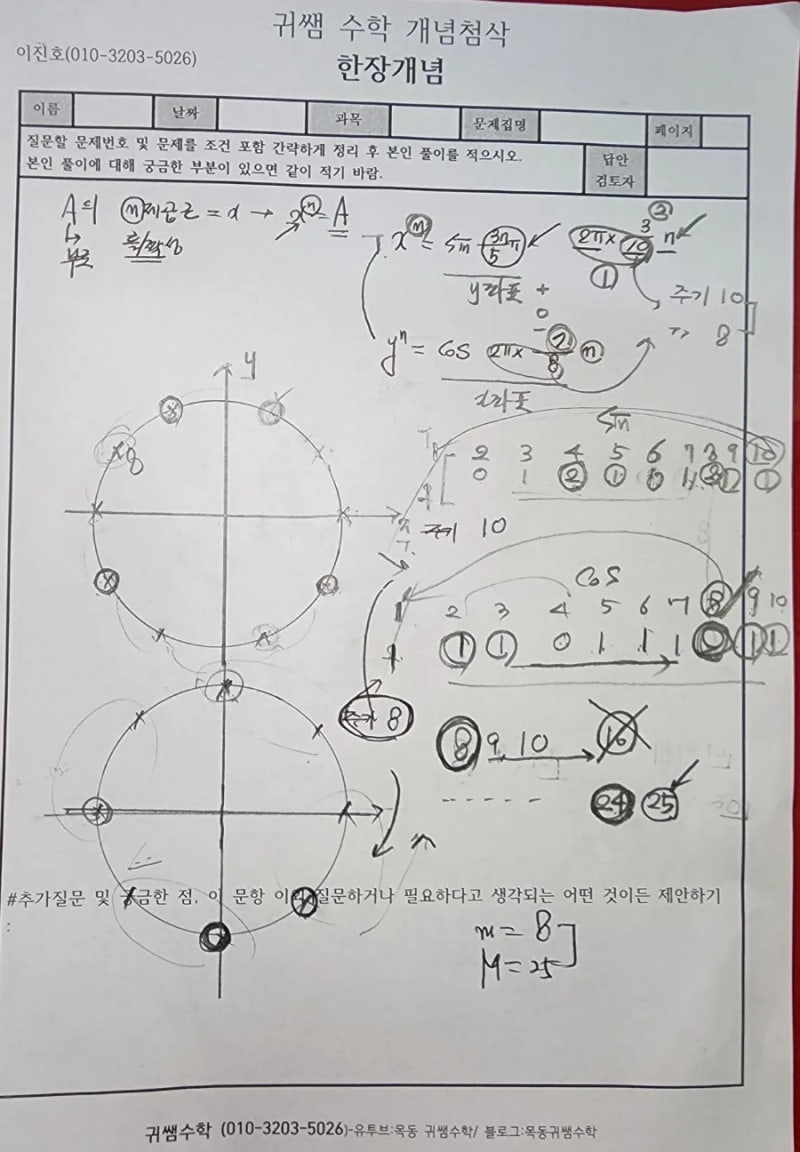 귀쌤 수학 개념첨삭
이진호(010-3203-5026)
한장개념
이름 날짜 과목 문제집명 페이지
질문할 문제번호 및 문제를 조건 포함 간략하게 정리 후 본인 풀이를 적으시오.
본인 풀이에 대해 궁금한 부분이 있으면 같이 적기 바람.
답안
검토자
A의 n제곱근 = x → xⁿ = A
부호
y좌표 + 0 -
주기 10
8
yⁿ = cos 2π×
n
x좌표
y
sin
2 3 4 5 6 7 8 9 10
주기 10
cos
1 2 3 4 5 6 7 8 9 10
1 1 1 0 1 1 1 0 1 1
주기 8
8 9 10 → 16
----- 24 25
#추가질문 및 궁금한 점, 이 문항 이외 질문하거나 필요하다고 생각되는 어떤 것이든 제안하기
:
m = 8
M = 25
귀쌤수학 (010-3203-5026)-유투브:목동 귀쌤수학/ 블로그:목동귀쌤수학